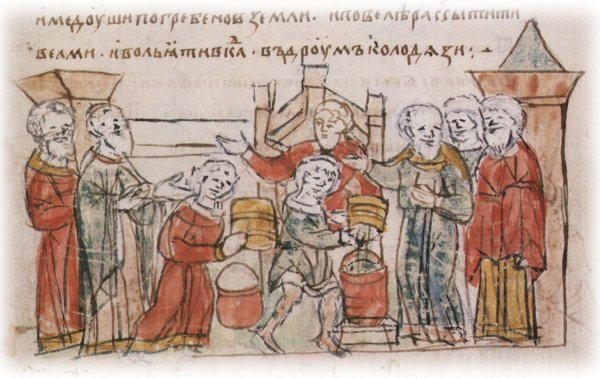 имедоуши погребено в земли · иповелѣ рассытити
велми · и вольꙗти вкаⷣ · въ дроумъ колодязи ;